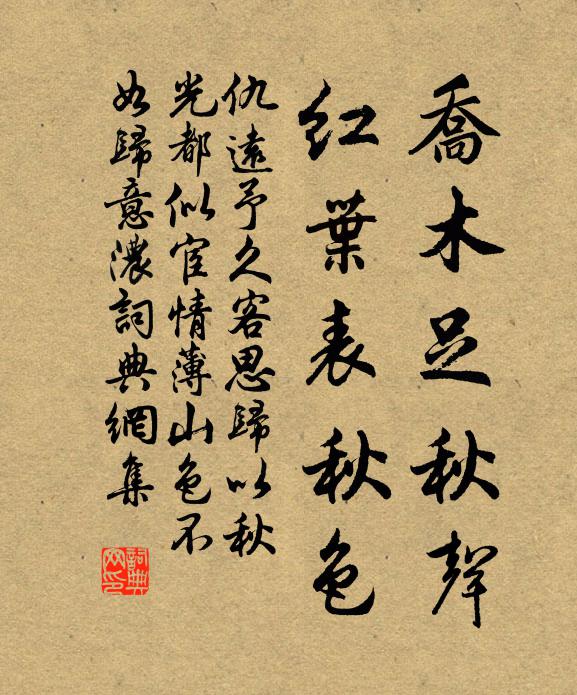 喬木足秋聲
紅葉表秋色
仇遠予久客思歸以秋
光都似宦情薄山色不
如歸意濃詞典網集
詞典
网印